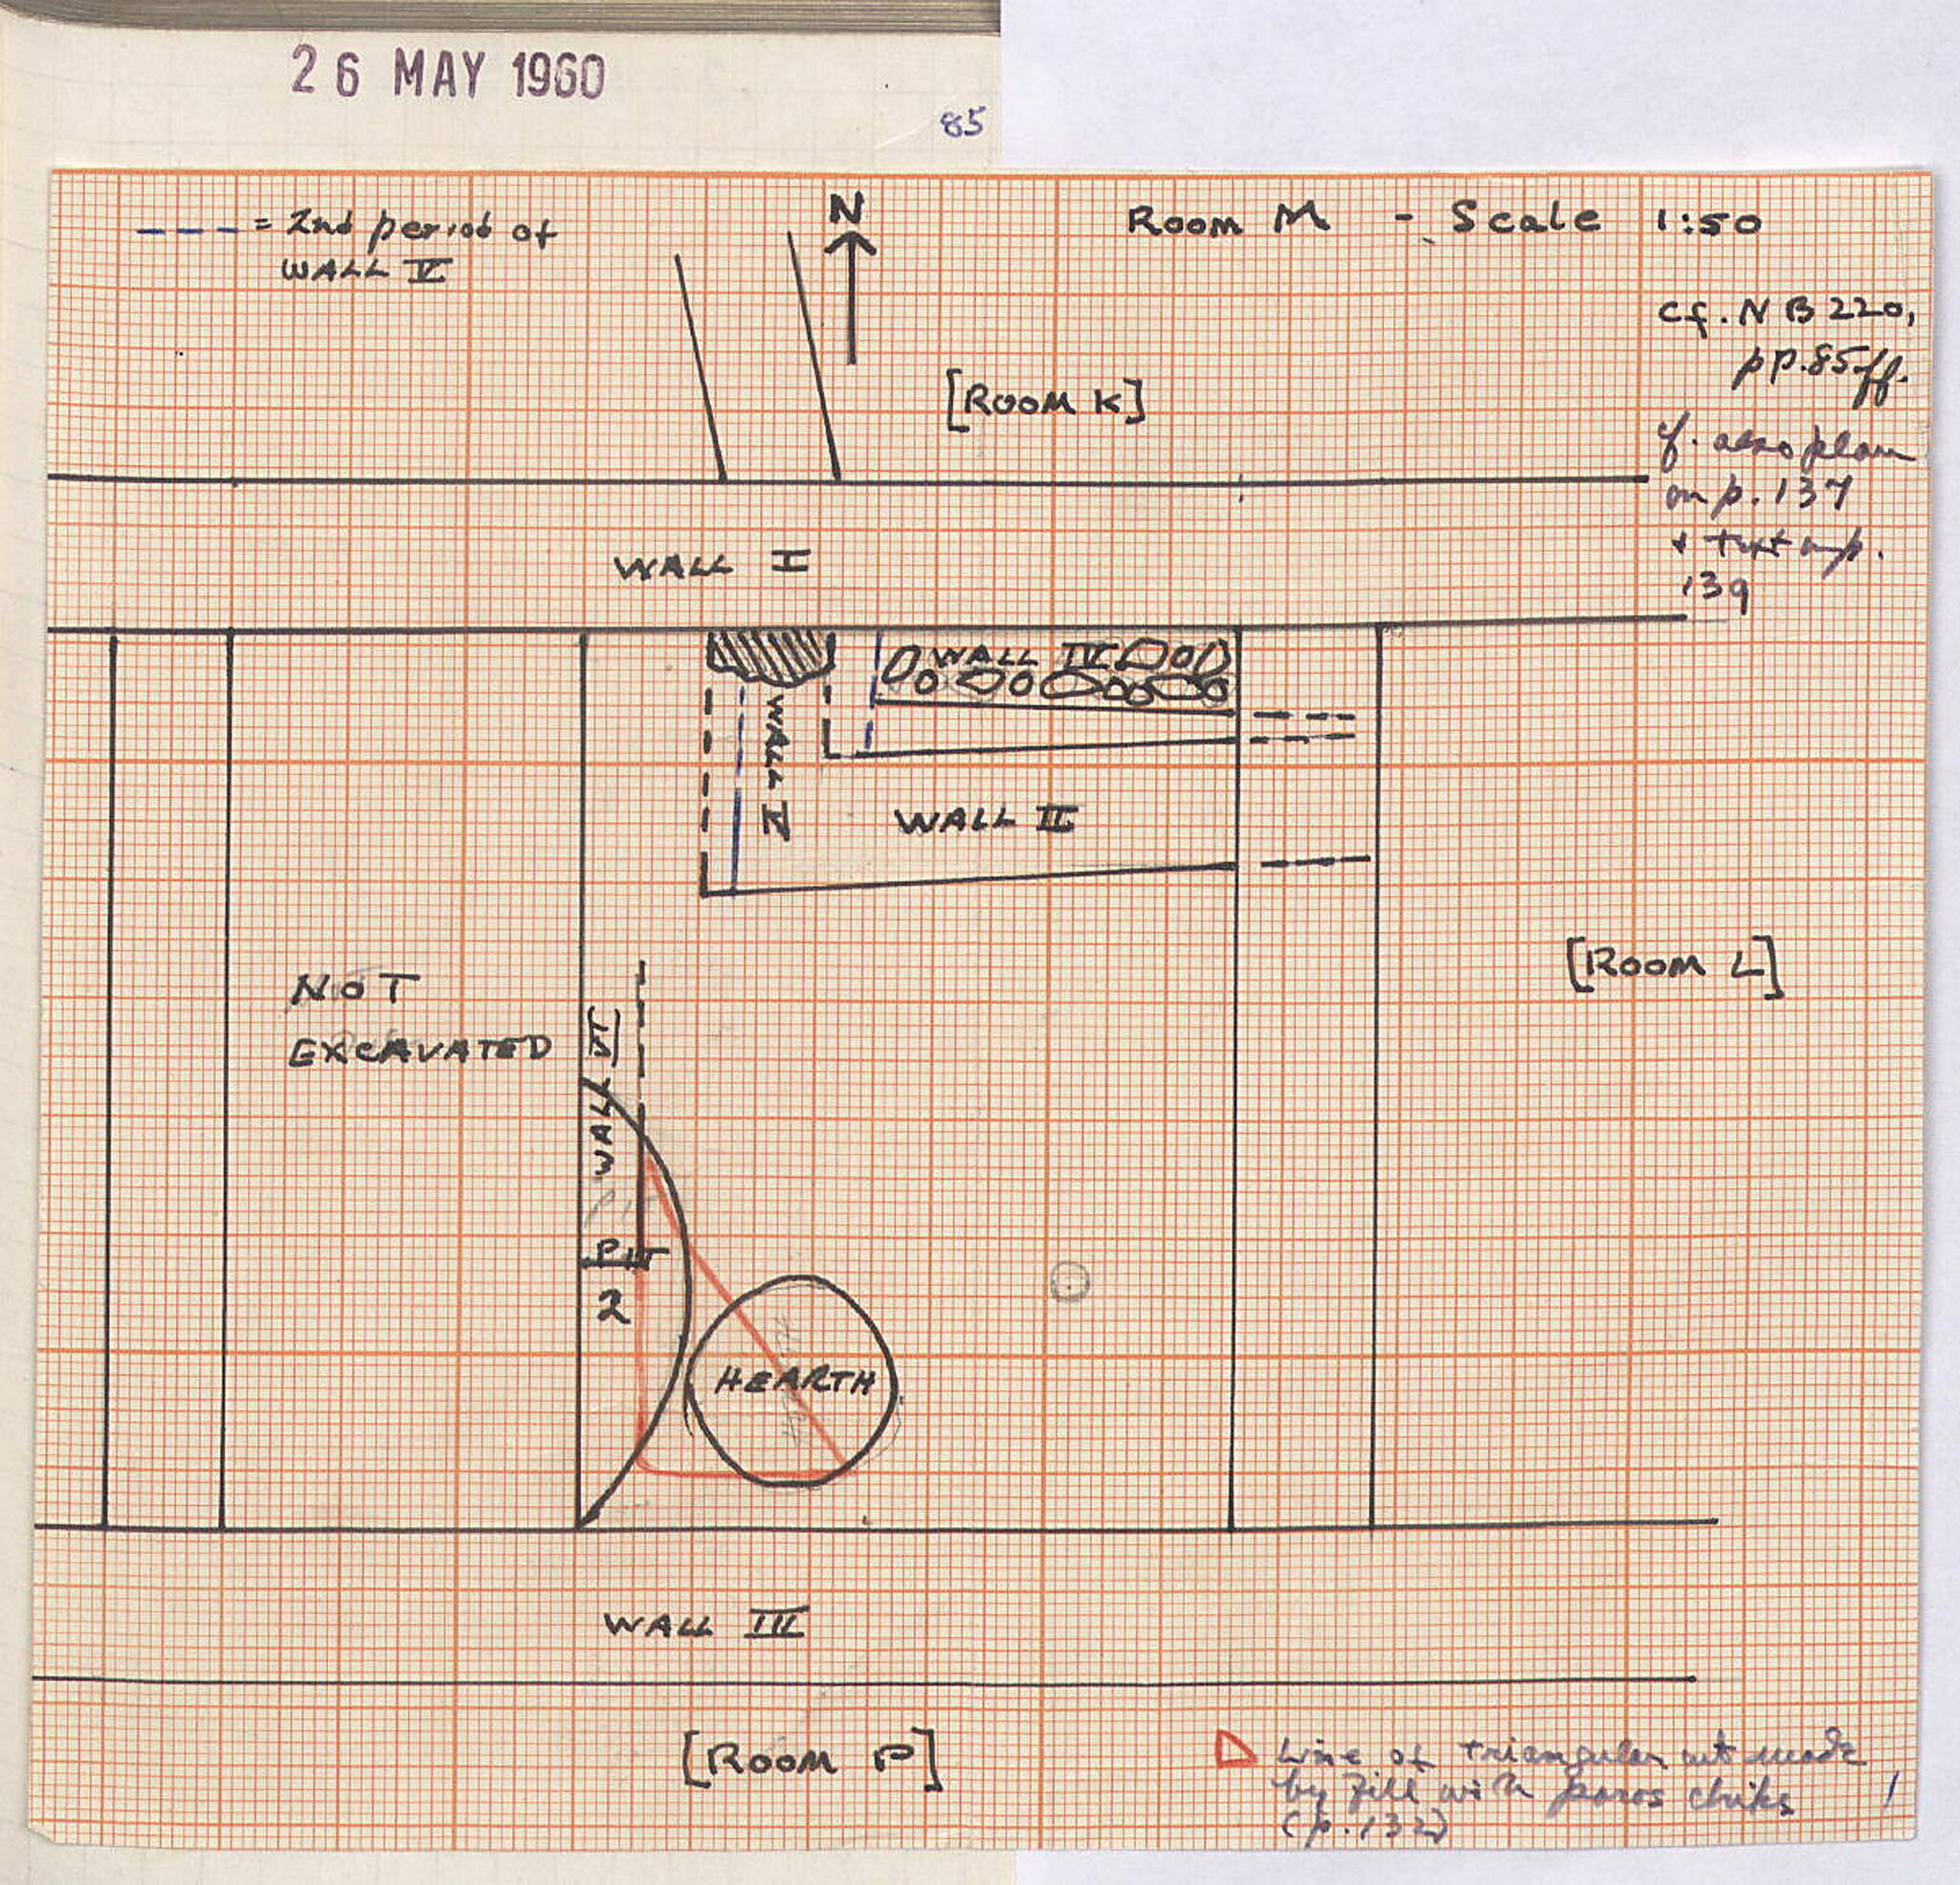 26 MAY 1960
85
--- = 2nd period of
WALL V
N
Room M - Scale 1:50
cf. NB 220,
pp. 85ff.
cf. also plan
on p. 137
+ text on p.
139
[ROOM K]
WALL I
WALL IV
WALL V
WALL II
[ROOM L]
NOT
EXCAVATED
WALL VI
PIT
2
HEARTH
WALL III
[ROOM P]
Line of triangular cut made
by fill with poros chips
(p. 132)